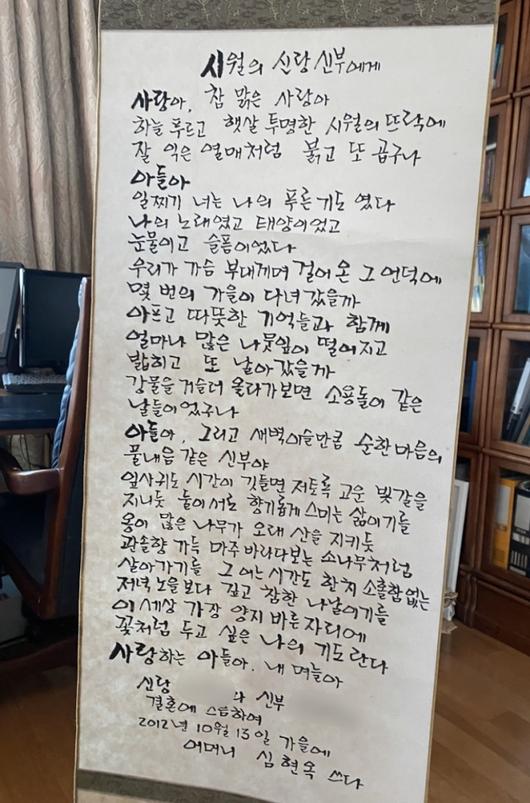 시월의 신랑 신부에게
사랑아, 참 맑은 사랑아
하늘 푸르고 햇살 투명한 시월의 뜨락에
잘 익은 열매처럼 붉고 또 곱구나
아들아
일찌기 너는 나의 푸른 기도 였다
나의 노래였고 태양이었고
눈물이고 슬픔이었다
우리가 가슴 부대끼며 걸어 온 그 언덕에
몇 번의 가을이 다녀 갔을까
아프고 따뜻한 기억들과 함께
얼마나 많은 나뭇잎이 떨어지고
밟히고 또 날아갔을까
강물을 거슬러 올라가보면 소용돌이 같은
날들이었구나
아들아, 그리고 새벽이슬만큼 순한 마음의
풀내음 같은 신부야
잎사귀도 시간이 깃들면 저토록 고운 빛깔을
지니듯 둘이 서로 향기롭게 스미는 삶이기를
옹이 많은 나무가 오래 산을 지키듯
관솔향 가득 마주 바라다보는 소나무처럼
살아가기를 그 어느 시간도 한치 소홀함 없는
저녁 노을보다 깊고 참한 나날이기를
이 세상 가장 양지 바른 자리에
꽃처럼 두고 싶은 나의 기도란다
사랑하는 아들아, 내 며늘아
신랑 과 신부
결혼에 즈음하여
2012년 10월 13일 가을에
어머니 심현옥 쓰다